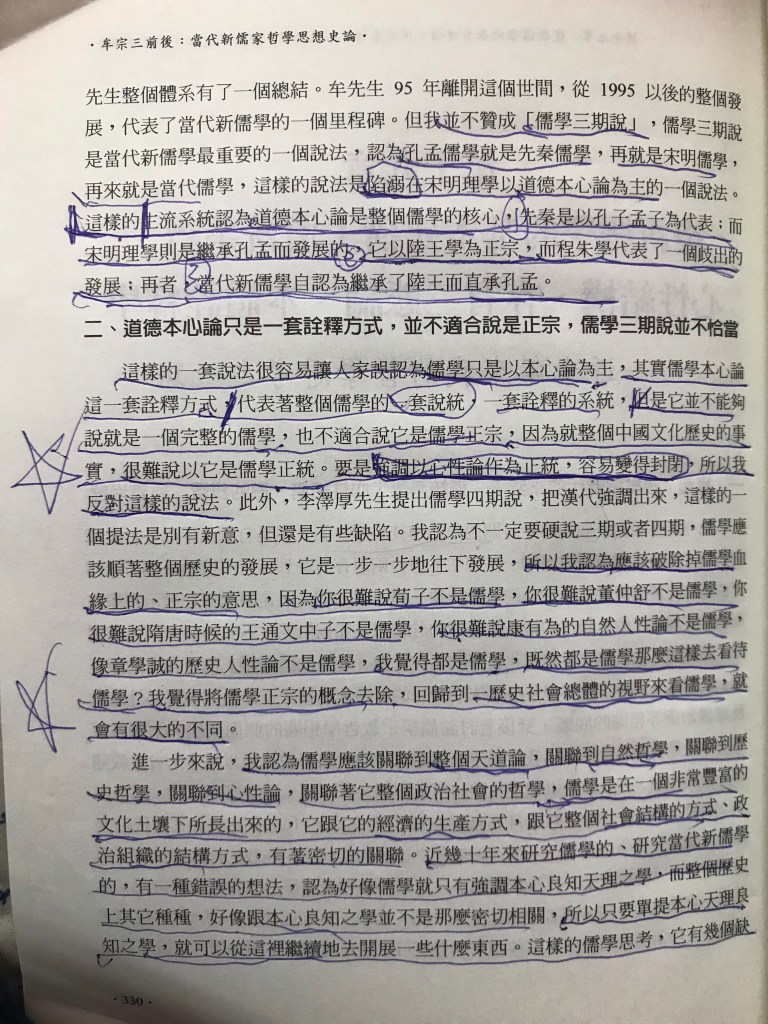 ·牟宗三前後：當代新儒家哲學思想史論·
先生整個體系有了一個總結。牟先生 95 年離開這個世間，從 1995 以後的整個發
展，代表了當代新儒學的一個里程碑。但我並不贊成「儒學三期說」，儒學三期說
是當代新儒學最重要的一個說法，認為孔孟儒學就是先秦儒學，再就是宋明儒學，
再來就是當代儒學，這樣的說法是陷溺在宋明理學以道德本心論為主的一個說法。
這樣的主流系統認為道德本心論是整個儒學的核心，先秦是以孔子孟子為代表；而
宋明理學則是繼承孔孟而發展的，它以陸王學為正宗，而程朱學代表了一個歧出的
發展；再者，當代新儒學自認為繼承了陸王而直承孔孟。
二、道德本心論只是一套詮釋方式，並不適合說是正宗，儒學三期說並不恰當
這樣的一套說法很容易讓人家誤認為儒學只是以本心論為主，其實儒學本心論
這一套詮釋方式，代表著整個儒學的一套說統，一套詮釋的系統，但是它並不能夠
說就是一個完整的儒學，也不適合說它是儒學正宗，因為就整個中國文化歷史的事
實，很難說以它是儒學正統。要是強調以心性論作為正統，容易變得封閉，所以我
反對這樣的說法。此外，李澤厚先生提出儒學四期說，把漢代強調出來，這樣的一
個提法是別有新意，但還是有些缺陷。我認為不一定要硬說三期或者四期，儒學應
該順著整個歷史的發展，它是一步一步地往下發展，所以我認為應該破除掉儒學血
緣上的、正宗的意思，因為你很難說荀子不是儒學，你很難說董仲舒不是儒學，你
很難說隋唐時候的王通文中子不是儒學，你很難說康有為的自然人性論不是儒學，
像章學誠的歷史人性論不是儒學，我覺得都是儒學，既然都是儒學那麼這樣去看待
儒學？我覺得將儒學正宗的概念去除，回歸到一歷史社會總體的視野來看儒學，就
會有很大的不同。
進一步來說，我認為儒學應該關聯到整個天道論，關聯到自然哲學，關聯到歷
史哲學，關聯到心性論，關聯著它整個政治社會的哲學，儒學是在一個非常豐富的
文化土壤下所長出來的，它跟它的經濟的生產方式，跟它整個社會結構的方式、政
治組織的結構方式，有著密切的關聯。近幾十年來研究儒學的、研究當代新儒學
的，有一種錯誤的想法，認為好像儒學就只有強調本心良知天理之學，而整個歷史
上其它種種，好像跟本心良知之學並不是那麼密切相關，所以只要單提本心天理良
知之學，就可以從這裡繼續地去開展一些什麼東西。這樣的儒學思考，它有幾個缺
·330·